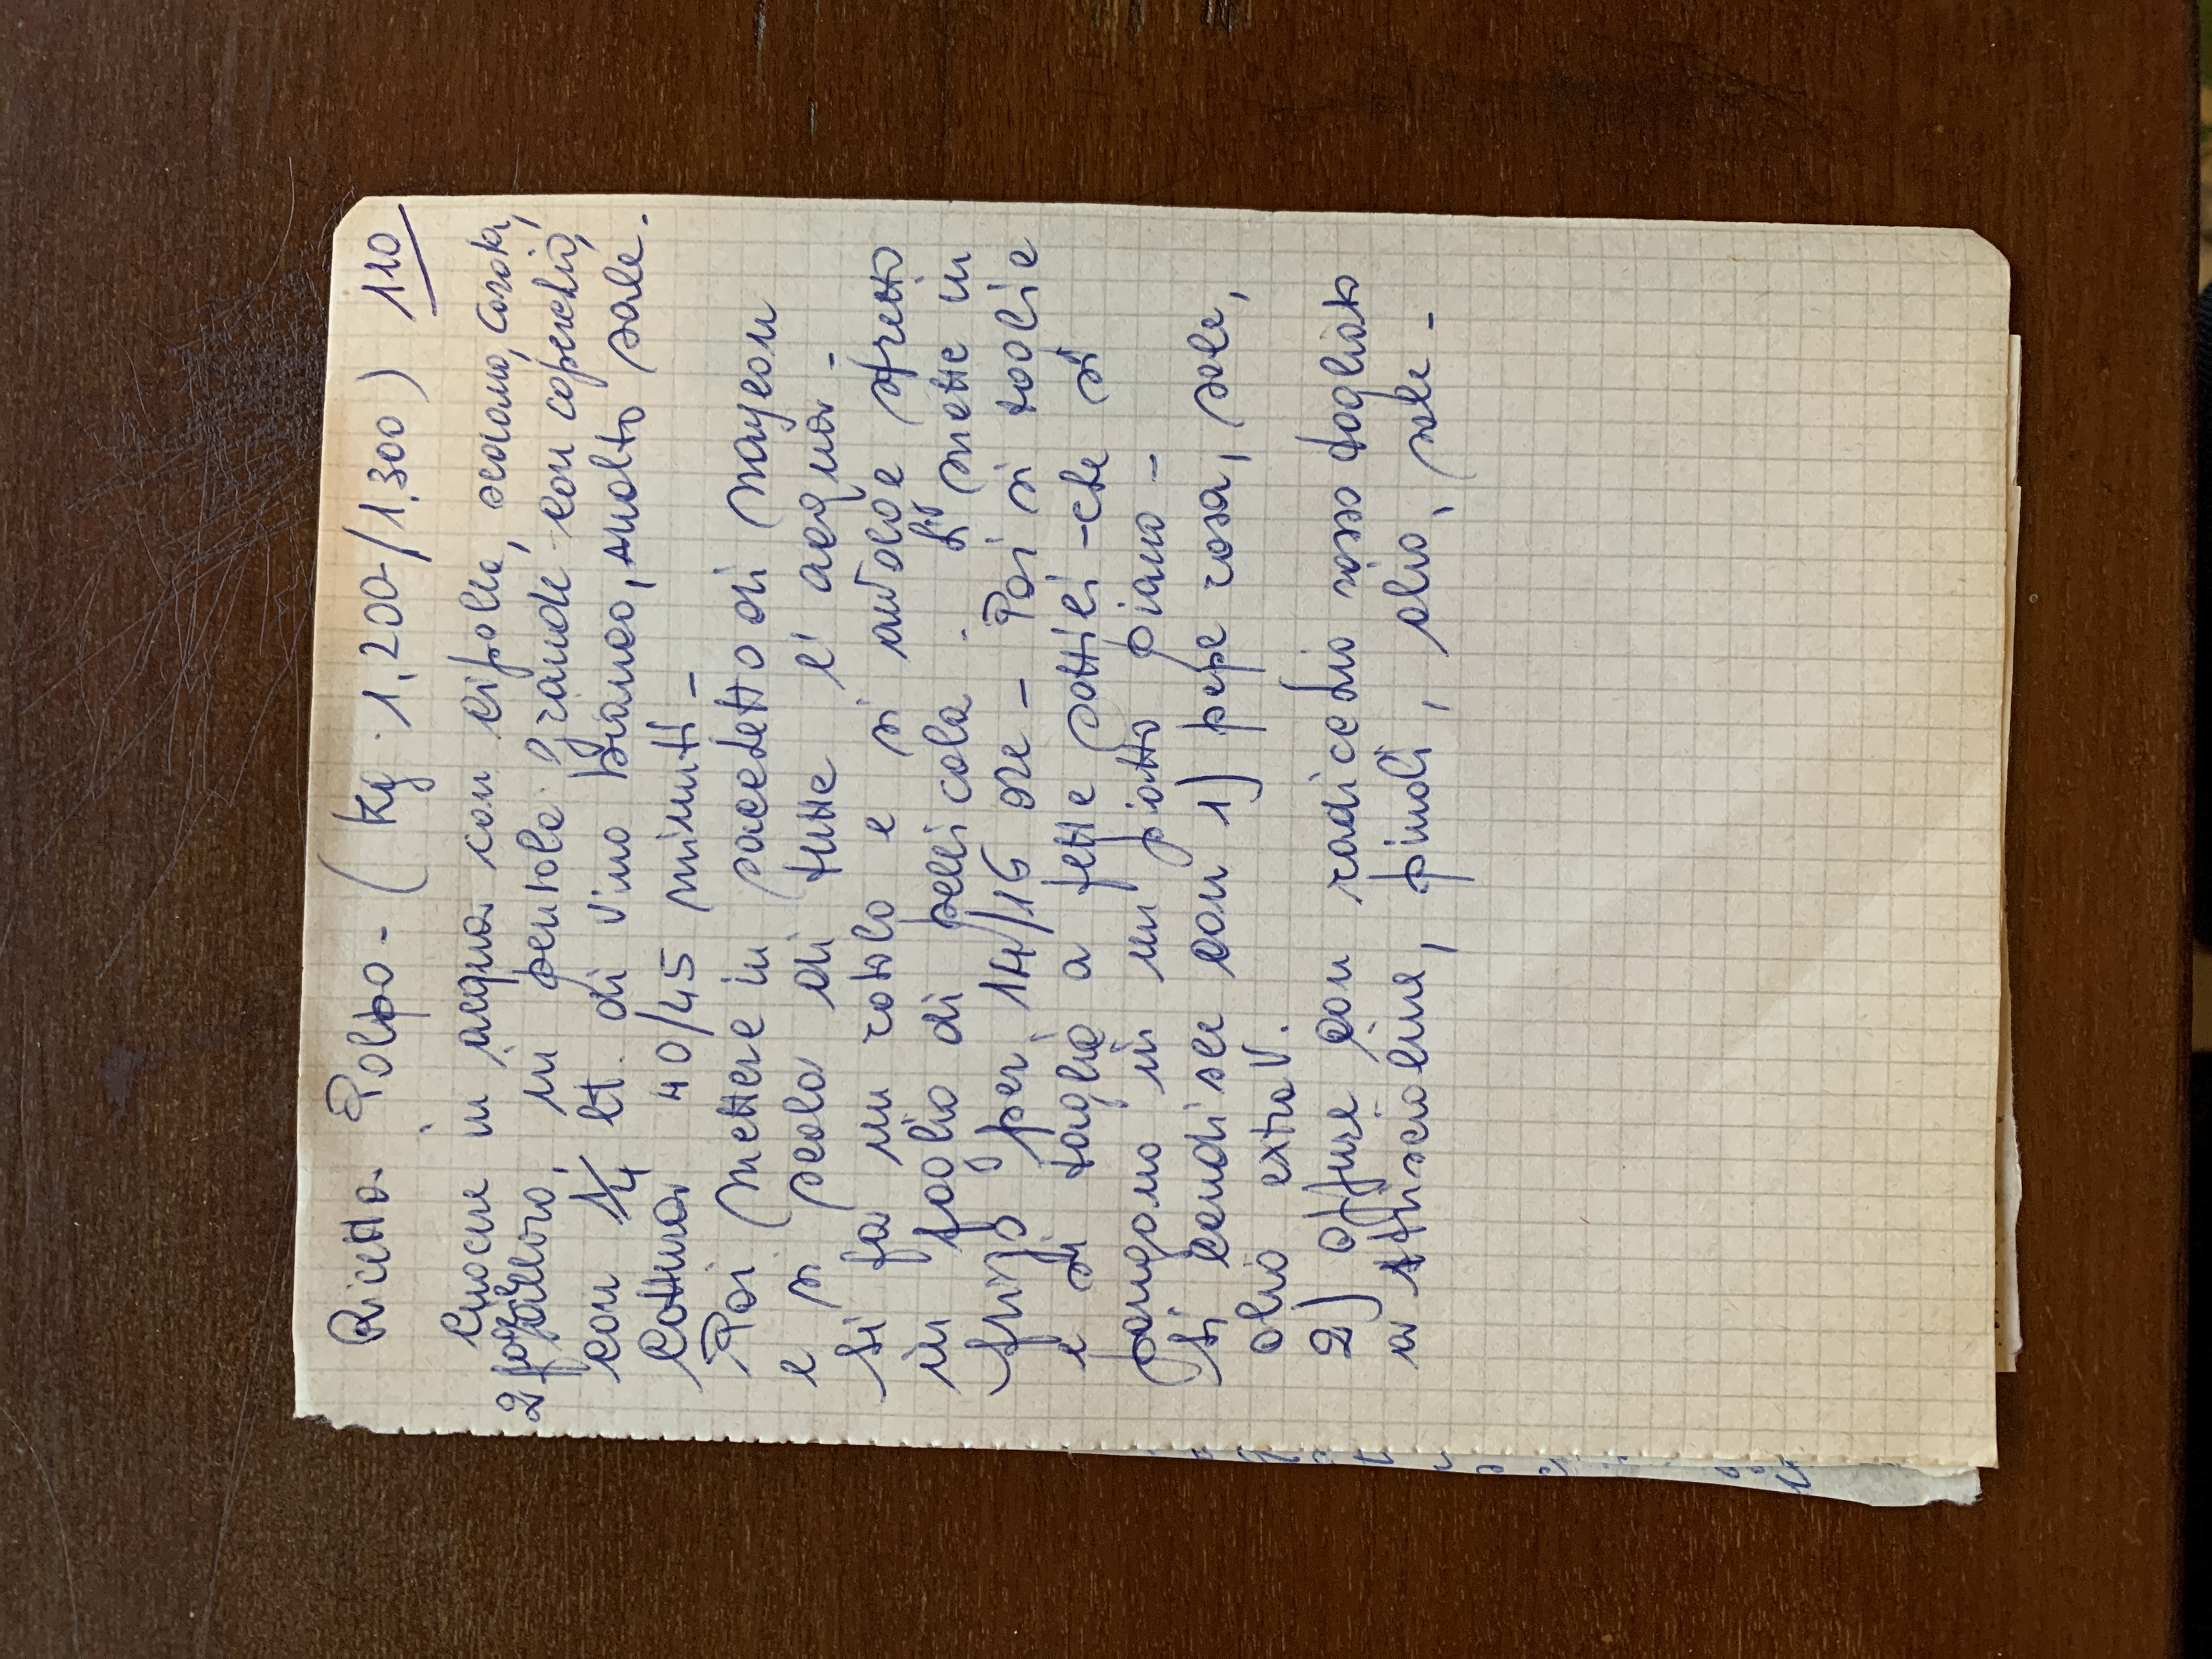 Ricetta Polpo - ( Kg. 1,200/1,300 ) 110
Cuocere in acqua con cipolla, sedano, carota,
2 foglie alloro, in pentola grande con coperchio,
con 1/4 lt. di vino bianco, molto sale.
Cottura 40/45 minuti -
Poi mettere in sacchetto di naylon
e si scola di tutte l'acqua -
Si fa un rotolo e si avvolge stretto
in foglio di pellicola - Si mette in
frigo per 14/16 ore - Poi si toglie
e si taglia a fette sottili - che si
pongono in un piatto piano -
Si condisce con 1) pepe rosa, sale,
olio extra V.
2) oppure con radicchio rosso tagliato
a striscioline, pinoli, olio, sale -